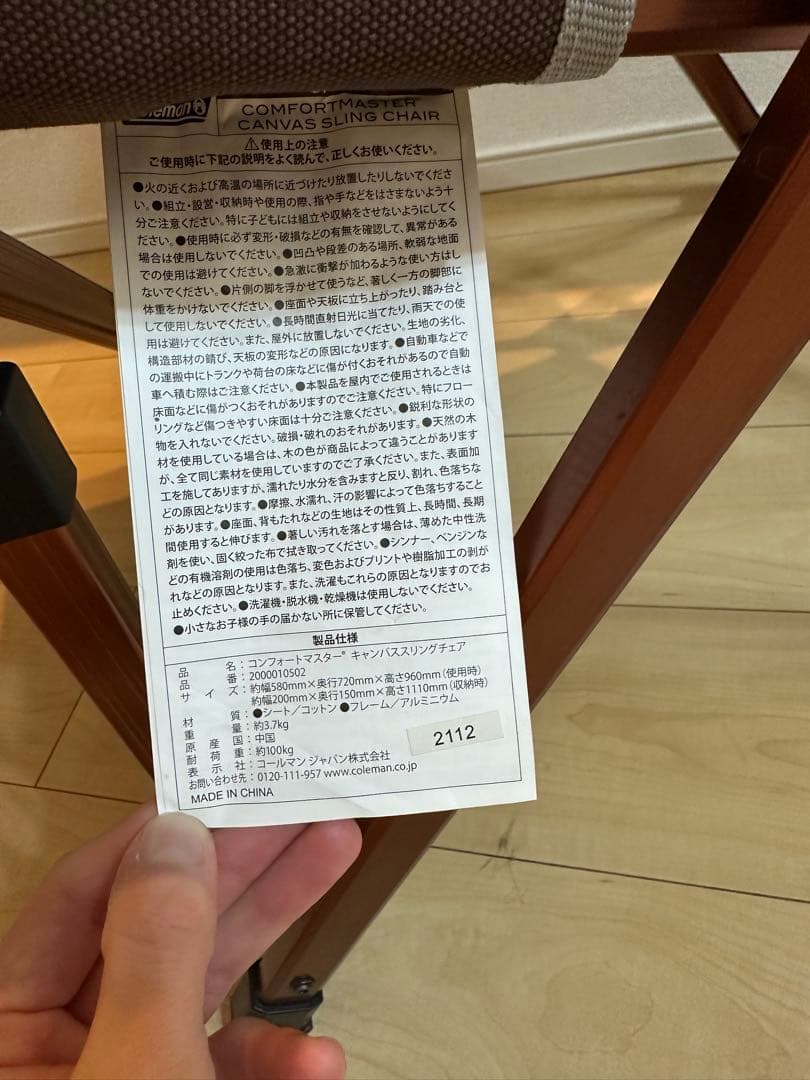 Coleman
COMFORTMASTER®
CANVAS SLING CHAIR
⚠使用上の注意
ご使用時に下記の説明をよく読んで、正しくお使いください。
●火の近くおよび高温の場所に近づけたり放置したりしないでくださ
い。●組立・設営・収納時や使用の際、指や手などをはさまないよう十
分ご注意ください。特に子どもには組立や収納をさせないようにしてく
ださい。●使用時に必ず変形・破損などの有無を確認して、異常がある
場合は使用しないでください。●凹凸や段差のある場所、軟弱な地面
での使用は避けてください。●急激に衝撃が加わるような使い方はし
ないでください。●片側の脚を浮かせて使うなど、著しく一方の脚部に
体重をかけないでください。●座面や天板に立ち上がったり、踏み台と
して使用しないでください。●長時間直射日光に当てたり、雨天での使
用は避けてください。また、屋外に放置しないでください。生地の劣化、
構造部材の錆び、天板の変形などの原因になります。●自動車などで
の運搬中にトランクや荷台の床などに傷が付くおそれがあるので自動
車へ積む際はご注意ください。●本製品を屋内でご使用されるときは
床面などに傷がつくおそれがありますのでご注意ください。特にフロー
リングなど傷つきやすい床面は十分ご注意ください。●鋭利な形状の
物を入れないでください。破損・破れのおそれがあります。●天然の木
材を使用している場合は、木の色が商品によって違うことがあります
が、全て同じ素材を使用していますのでご了承ください。また、表面加
工を施してありますが、濡れたり水分を含みますと反り、割れ、色落ちな
どの原因となります。●摩擦、水濡れ、汗の影響によって色落ちすること
があります。●座面、背もたれなどの生地はその性質上、長時間、長期
間使用すると伸びます。●著しい汚れを落とす場合は、薄めた中性洗
剤を使い、固く絞った布で拭き取ってください。●シンナー、ベンジンな
どの有機溶剤の使用は色落ち、変色およびプリントや樹脂加工の剥が
れなどの原因となります。また、洗濯もこれらの原因となりますのでお
止めください。●洗濯機・脱水機・乾燥機は使用しないでください。
●小さなお子様の手の届かない所に保管してください。
製品仕様
品名：コンフォートマスター® キャンバススリングチェア
品番：2000010502
サイズ：約幅580mm×奥行720mm×高さ960mm（使用時）
約幅200mm×奥行150mm×高さ1110mm（収納時）
材質：●シート／コットン ●フレーム／アルミニウム
重量：約3.7kg
原産国：中国
耐荷重：約100kg
表示社：コールマン ジャパン株式会社
お問い合わせ先：0120-111-957 www.coleman.co.jp
MADE IN CHINA
2112